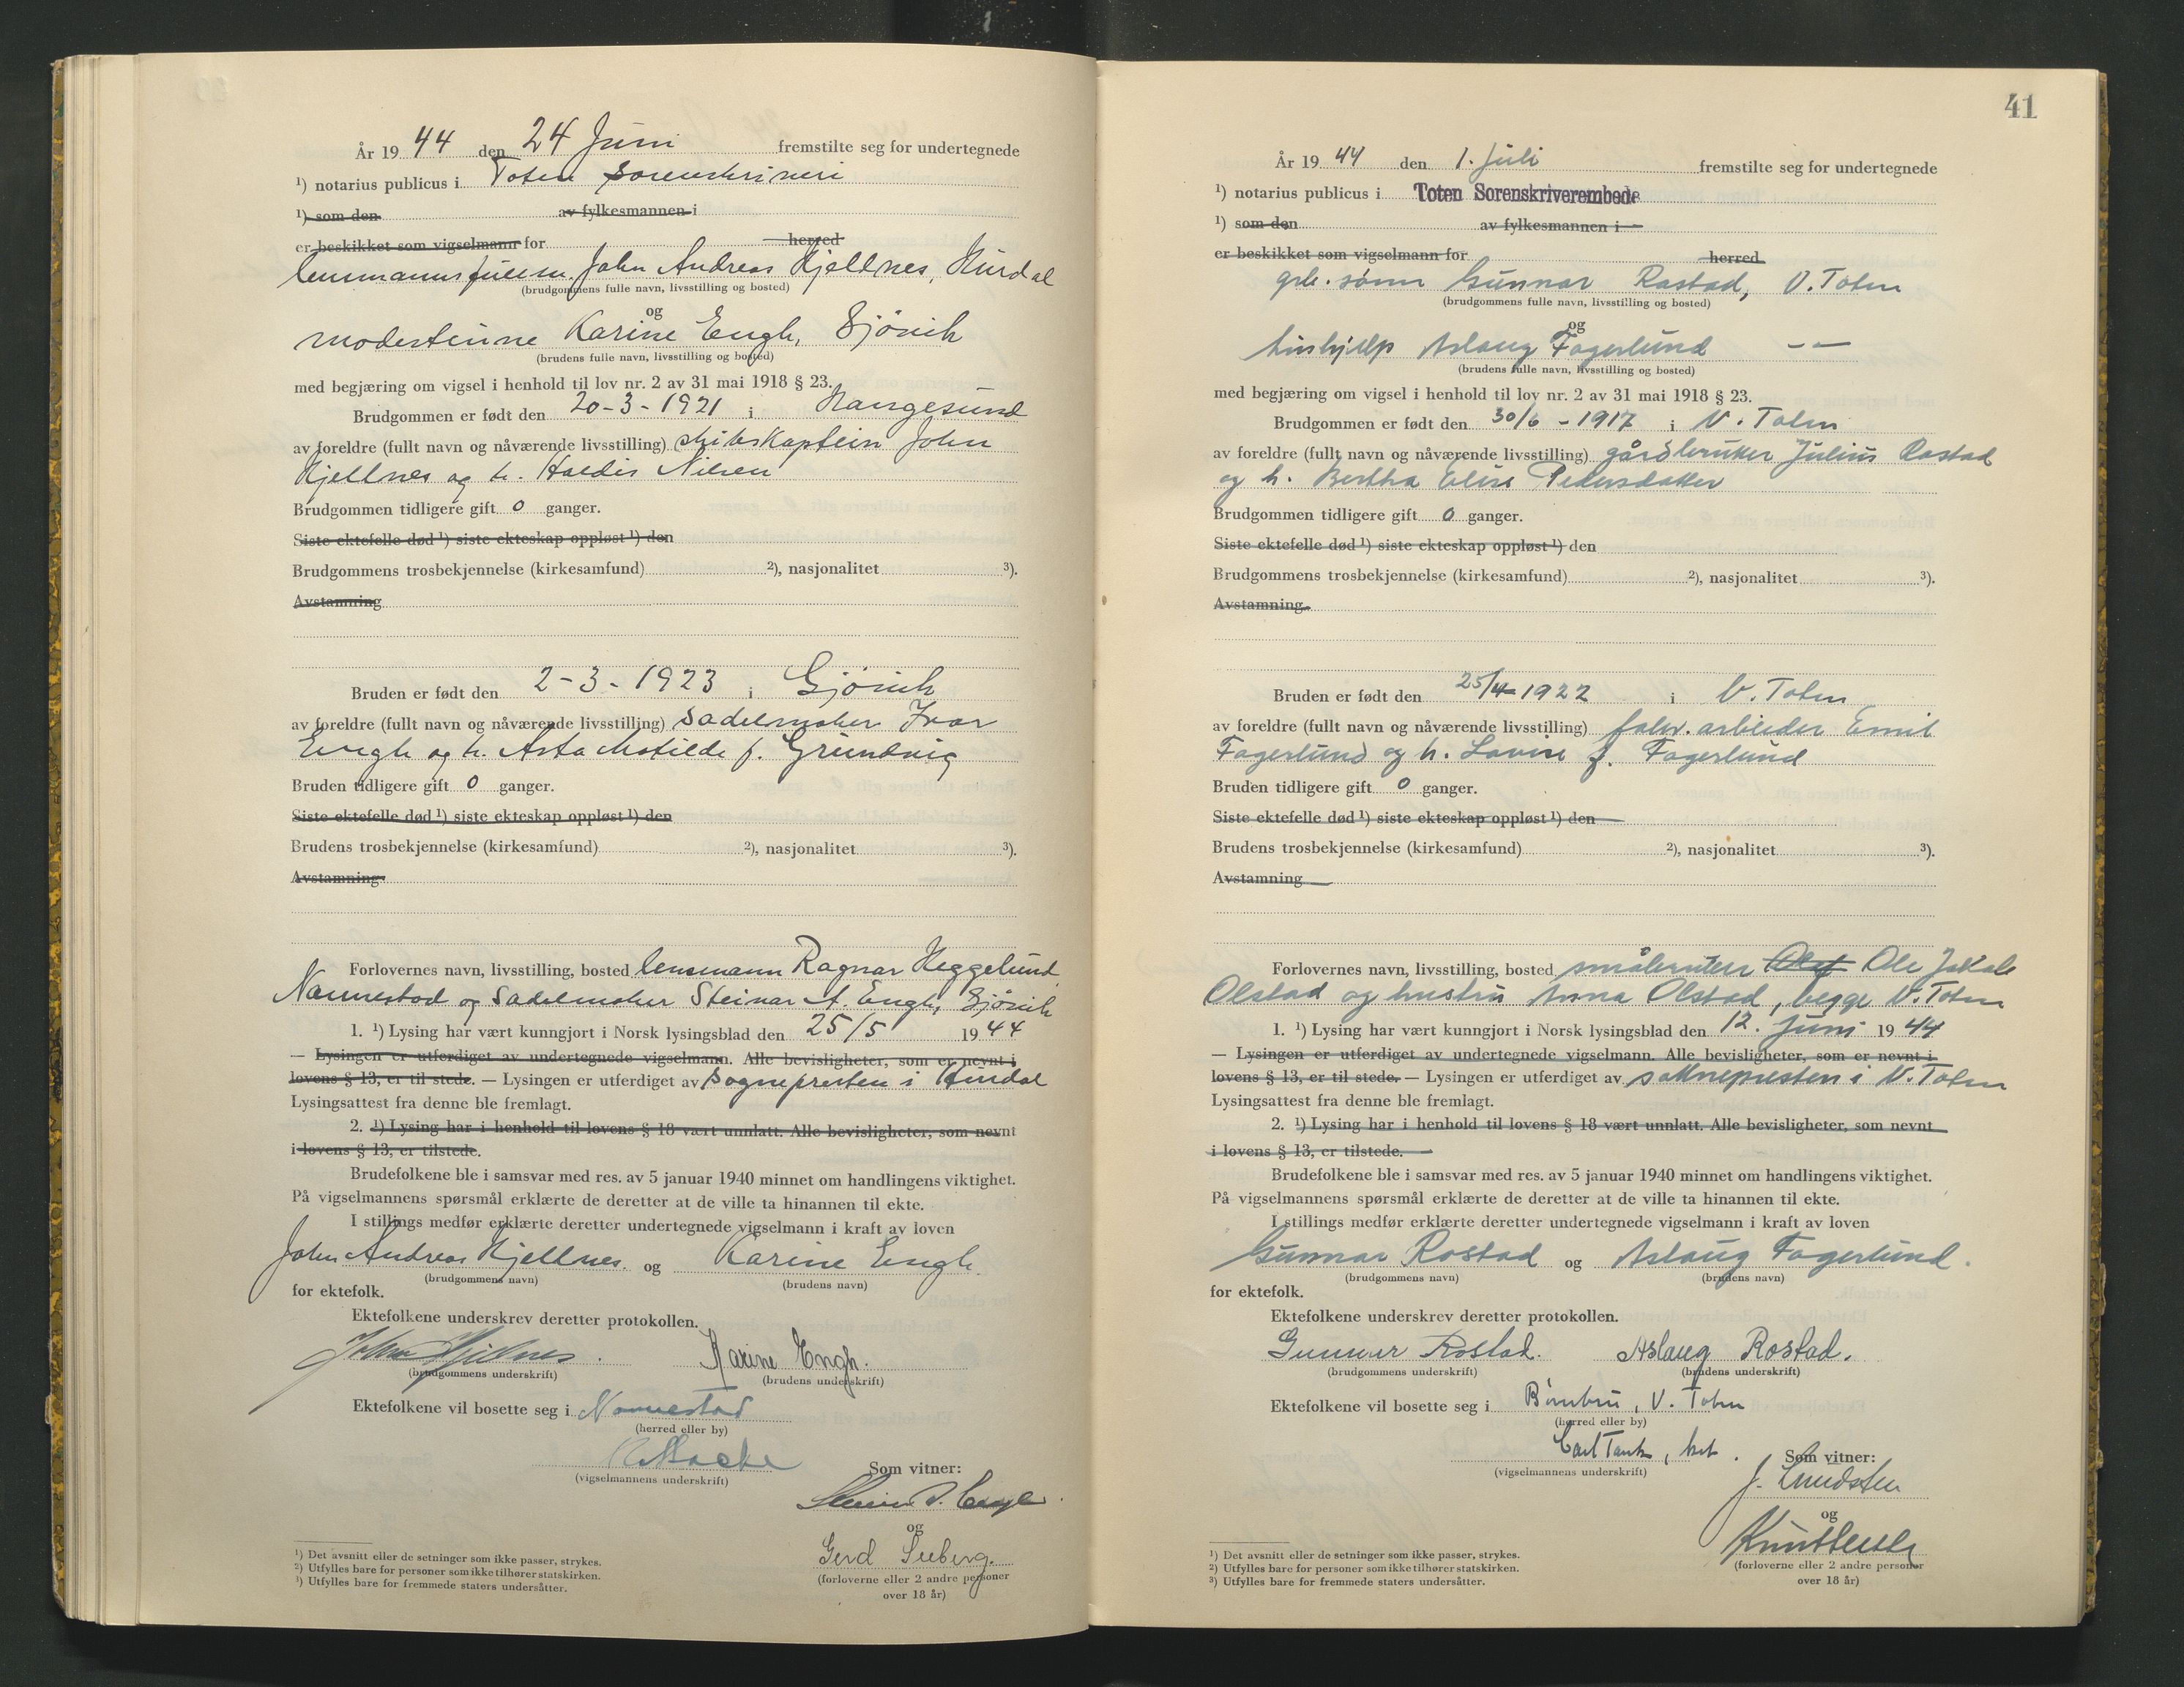 År 19 44 den 24 Juni fremstilte seg for undertegnede
¹) notarius publicus i Toten Sorenskriveri
¹) som den av fylkesmannen i
er beskikket som vigselmann for herred
John Andreas Kjellnes, Hurdal
(brudgommens fulle navn, livsstilling og bosted)
og
modistinne Karine Engh, Gjövik
(brudens fulle navn, livsstilling og bosted)
med begjæring om vigsel i henhold til lov nr. 2 av 31 mai 1918 § 23.
Brudgommen er født den 20-3-1921 i Haugesund
av foreldre (fullt navn og nåværende livsstilling) skibskaptein John
Kjellnes og h. Haldis Nilsen
Brudgommen tidligere gift 0 ganger.
Siste ektefelle død ¹) siste ekteskap oppløst ¹) den
Brudgommens trosbekjennelse (kirkesamfund) ²), nasjonalitet ³).
Avstamning
Bruden er født den 2-3-1923 i Gjövik
av foreldre (fullt navn og nåværende livsstilling) sadelmaker Ivar
Engh og h. Asta Matilde f. Grundvig
Bruden tidligere gift 0 ganger.
Siste ektefelle død ¹) siste ekteskap oppløst ¹) den
Brudens trosbekjennelse (kirkesamfund) ²), nasjonalitet ³).
Avstamning
Forlovernes navn, livsstilling, bosted lensmann Ragnar Heggelund
Nannestad og Sadelmaker Steinar A. Engh, Gjövik
1. ¹) Lysing har vært kunngjort i Norsk lysingsblad den 25/5 1944
— Lysingen er utferdiget av undertegnede vigselmann. Alle bevisligheter, som er nevnt i
lovens § 13, er til stede. — Lysingen er utferdiget av sognepresten i Hurdal
Lysingsattest fra denne ble fremlagt.
2. ¹) Lysing har i henhold til lovens § 18 vært unnlatt. Alle bevisligheter, som nevnt
i lovens § 13, er tilstede.
Brudefolkene ble i samsvar med res. av 5 januar 1940 minnet om handlingens viktighet.
På vigselmannens spørsmål erklærte de deretter at de ville ta hinannen til ekte.
I stillings medfør erklærte deretter undertegnede vigselmann i kraft av loven
John Andreas Kjellnes og Karine Engh
(brudgommens navn) (brudens navn)
for ektefolk.
Ektefolkene underskrev deretter protokollen.
John Kjellnes. Karine Engh.
(brudgommens underskrift) (brudens underskrift)
Ektefolkene vil bosette seg i Nannestad
(herred eller by)
(vigselmannens underskrift)
Som vitner:
og
Gerd Seeberg.
(forloverne eller 2 andre personer
over 18 år)
¹) Det avsnitt eller de setninger som ikke passer, strykes.
²) Utfylles bare for personer som ikke tilhører statskirken.
³) Utfylles bare for fremmede staters undersåtter.
41
År 19 44 den 1. Juli fremstilte seg for undertegnede
¹) notarius publicus i Toten Sorenskriverembede
¹) som den av fylkesmannen i
er beskikket som vigselmann for herred
grb. sønn Gunnar Rostad, V. Toten
(brudgommens fulle navn, livsstilling og bosted)
og
hushjelp Aslaug Fagerlund — —
(brudens fulle navn, livsstilling og bosted)
med begjæring om vigsel i henhold til lov nr. 2 av 31 mai 1918 § 23.
Brudgommen er født den 30/6 - 1917 i V. Toten
av foreldre (fullt navn og nåværende livsstilling) gårdbruker Julius Rostad
og h. Bertha Elise Pedersdatter
Brudgommen tidligere gift 0 ganger.
Siste ektefelle død ¹) siste ekteskap oppløst ¹) den
Brudgommens trosbekjennelse (kirkesamfund) ²), nasjonalitet ³).
Avstamning
Bruden er født den 25/4-1922 i V. Toten
av foreldre (fullt navn og nåværende livsstilling) fabr. arbeider Emil
Fagerlund og h. Lovise f. Fagerlund
Bruden tidligere gift 0 ganger.
Siste ektefelle død ¹) siste ekteskap oppløst ¹) den
Brudens trosbekjennelse (kirkesamfund) ²), nasjonalitet ³).
Avstamning
Forlovernes navn, livsstilling, bosted småbruker Ole Jakob
Olstad og hustru Anna Olstad, begge V. Toten
1. ¹) Lysing har vært kunngjort i Norsk lysingsblad den 12. Juni 1944
— Lysingen er utferdiget av undertegnede vigselmann. Alle bevisligheter, som er nevnt i
lovens § 13, er til stede. — Lysingen er utferdiget av soknepresten i V. Toten
Lysingsattest fra denne ble fremlagt.
2. ¹) Lysing har i henhold til lovens § 18 vært unnlatt. Alle bevisligheter, som nevnt
i lovens § 13, er tilstede.
Brudefolkene ble i samsvar med res. av 5 januar 1940 minnet om handlingens viktighet.
På vigselmannens spørsmål erklærte de deretter at de ville ta hinannen til ekte.
I stillings medfør erklærte deretter undertegnede vigselmann i kraft av loven
Gunnar Rostad og Aslaug Fagerlund.
(brudgommens navn) (brudens navn)
for ektefolk.
Ektefolkene underskrev deretter protokollen.
Gunnar Rostad. Aslaug Rostad.
(brudgommens underskrift) (brudens underskrift)
Ektefolkene vil bosette seg i V. Toten
(herred eller by)
Carl Tank
(vigselmannens underskrift)
Som vitner:
J. Lundsten
og
(forloverne eller 2 andre personer
over 18 år)
¹) Det avsnitt eller de setninger som ikke passer, strykes.
²) Utfylles bare for personer som ikke tilhører statskirken.
³) Utfylles bare for fremmede staters undersåtter.